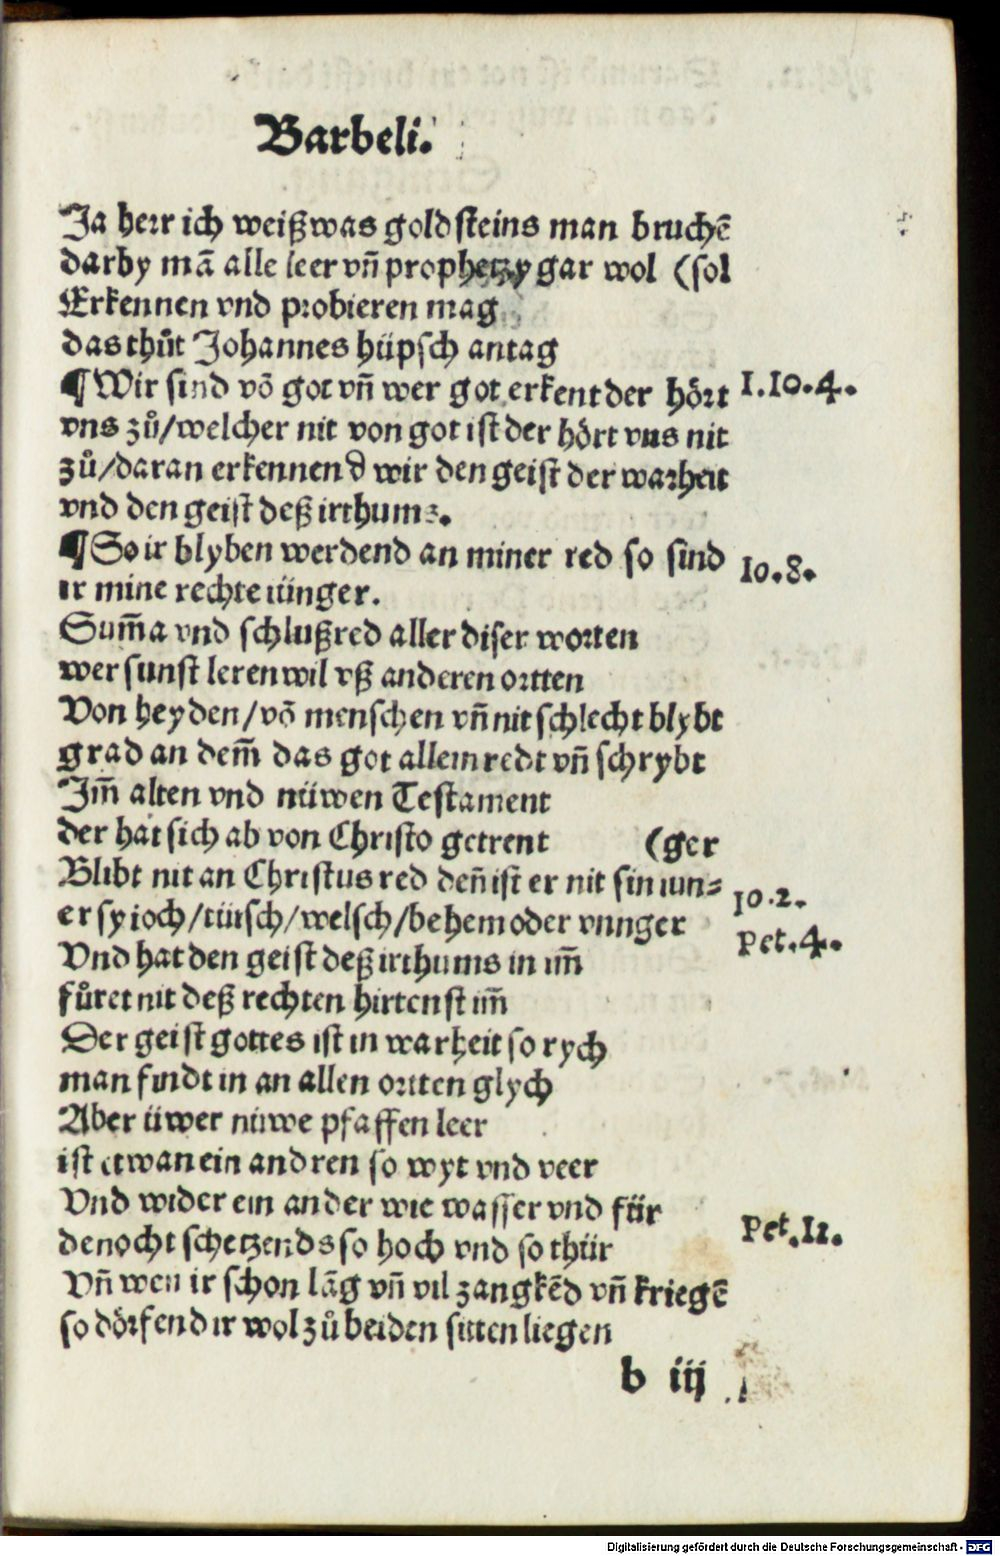 Barbeli.
Ja herr ich weiß was goldsteins man bruchē
darby mā alle leer vn̄ prophetzy gar wol (sol
Erkennen vnd probieren mag
das thůt Johannes hüpsch antag
¶ Wir sind vō got vn̄ wer got erkent der hört
1.Io.4.
vns zů/welcher nit von got ist der hört vns nit
zů/daran erkennend wir den geist der warheit
vnd den geist deß irthums.
¶ So ir blyben werdend an miner red so sind
Io.8.
ir mine rechte iünger.
Sum̄a vnd schlußred aller diser worten
wer sunst leren wil vß anderen ortten
Von heyden/vō menschen vn̄ nit schlecht blybt
grad an dem̄ das got allein redt vn̄ schrybt
Im̄ alten vnd nüwen Testament
der hat sich ab von Christo getrent (ger
Blibt nit an Christus red den̄ ist er nit sin iun-
Io.2.
er sy ioch/tütsch/welsch/behem oder vnnger
Pet.4.
Vnd hat den geist deß irthums in im̄
fůret nit deß rechten hirten stim̄
Der geist gottes ist in warheit so rych
man findt in an allen ortten glych
Aber üwer nüwe pfaffen leer
ist etwan ein andren so wyt vnd veer
Vnd wider ein ander wie wasser vnd für
Pet.II.
denocht schetzends so hoch vnd so thür
Vn̄ wen ir schon lāg vn̄ vil zangkēd vn̄ kriegē
so dörfend ir wol zů beiden sitten liegen
b iij
Digitalisierung gefördert durch die Deutsche Forschungsgemeinschaft - DFG